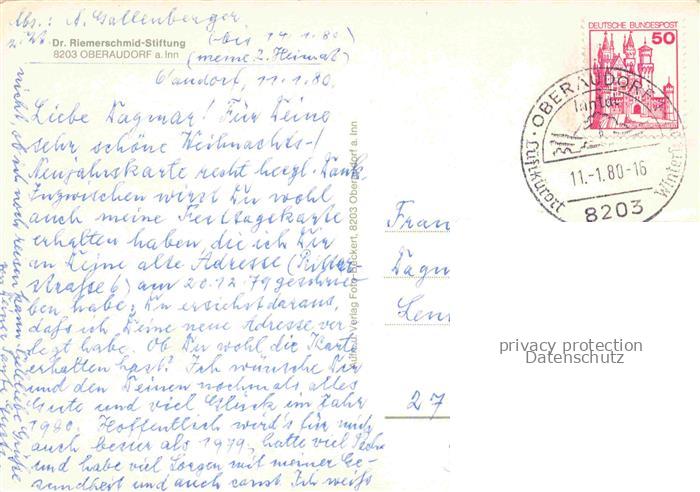 Abs.: A. Gallenberger
z. Zt.
(bis 14.1.80)
Dr. Riemerschmid-Stiftung
8203 OBERAUDORF a. Inn
(meine 2. Heimat)
Oaudorf, 11.1.80.
Liebe Dagmar! Für Deine
sehr schöne Weihnachts-/
Neujahrskarte recht herzl. Dank.
Inzwischen wirst Du wohl
auch meine Festtagskarte
erhalten haben, die ich Dir
an Deine alte Adresse (Ritter
strasse 6) am 20.12.79 geschrie-
ben habe; Du ersiehst daraus,
daß ich Deine neue Adresse ver-
legt habe. Ob Du wohl die Karte
erhalten hast? Ich wünsche Dir
und den Deinen nochmals alles
Gute und viel Glück im Jahr
1980. Hoffentlich wird's für mich
auch besser als 1979, hatte viel Pech
und habe viel Sorgen mit meiner Ge-
sundheit und auch sonst. Ich weiß
nicht ob ich noch reisen kann. Liebe Grüße
von Deiner Tante
Verlag Foto-Beckert, 8203 Oberaudorf a. Inn
DEUTSCHE BUNDESPOST
50
OBERAUDORF
Inntal
Luftkurort
Winter
11.-1.80-16
8203
Frau
Dagm
Len
27
privacy protection
Datenschutz